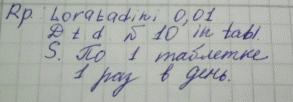 Rp. Loratadini 0,01
D t d № 10 in tabl.
S. По 1 таблетке
1 раз в день.